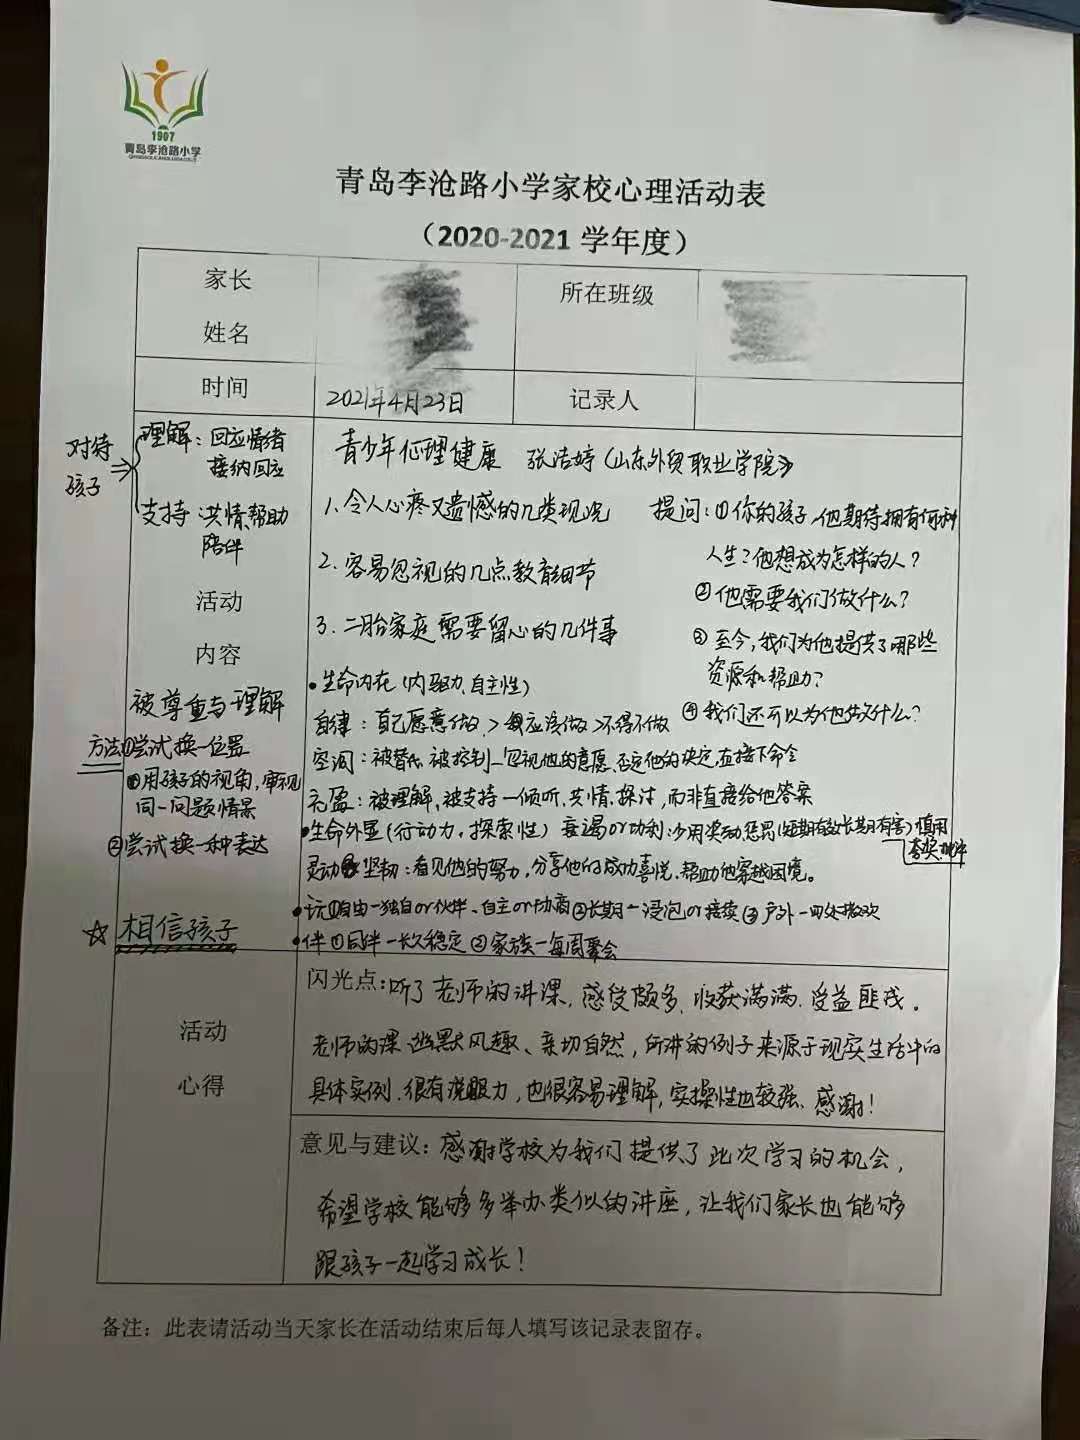 1907
青岛李沧路小学
QINGDAOLICANGLUXIAOXUE
青岛李沧路小学家校心理活动表
（2020-2021 学年度）
家长
姓名
所在班级
时间
2021年4月23日
记录人
对待
孩子
理解：回应情绪
接纳回应
支持：共情、帮助
陪伴
活动
内容
被尊重与理解
方法①尝试换一位置
①用孩子的视角，审视
同一问题情景
②尝试换一种表达
☆ 相信孩子
青少年心理健康 张洁婷（山东外贸职业学院）
1、令人心疼又遗憾的几类现况
2、容易忽视的几点教育细节
3、二胎家庭需要留心的几件事
提问：①你的孩子，他期待拥有何种
人生？他想成为怎样的人？
②他需要我们做什么？
③至今，我们为他提供了哪些
资源和帮助？
④我们还可以为他做什么？
•生命内在（内驱力、自主性）
自律：自己愿意做>我应该做>不得不做
空洞：被替代、被控制—忽视他的意愿、否定他的决定，直接下命令
充盈：被理解，被支持—倾听、共情、探讨，而非直接给他答案
•生命外显（行动力，探索性） 衰竭or功利：少用奖励、惩罚（短期有效长期有害）慎用
灵动 坚韧：看见他的努力，分享他的成功喜悦、帮助他穿越困境。
•玩①自由—独自or伙伴、自主or协商②长期—浸泡or接续③户外—四处撒欢
•伴①同伴—长久稳定②家族—每周聚会
活动
心得
闪光点：听了老师的讲课，感受颇多，收获满满，受益匪浅。
老师的课幽默风趣、亲切自然，所讲的例子来源于现实生活中的
具体实例，很有说服力，也很容易理解，实操性也较强、感谢！
意见与建议：感谢学校为我们提供了此次学习的机会，
希望学校能够多举办类似的讲座，让我们家长也能够
跟孩子一起学习成长！
备注：此表请活动当天家长在活动结束后每人填写该记录表留存。